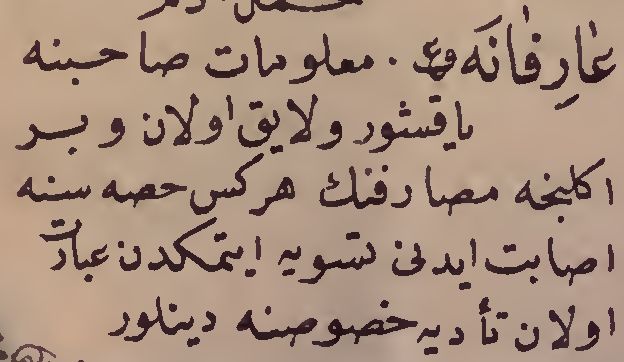 عَارِفَانَه فع . معلومات صاحبنه
یاقشور ولایق اولان و بر
اکلنجه مصارفنك هرکس حصه سنه
اصابت ایدنی تسویه ایتمکدن عبارت
اولان تأدیه خصوصنه دینلور